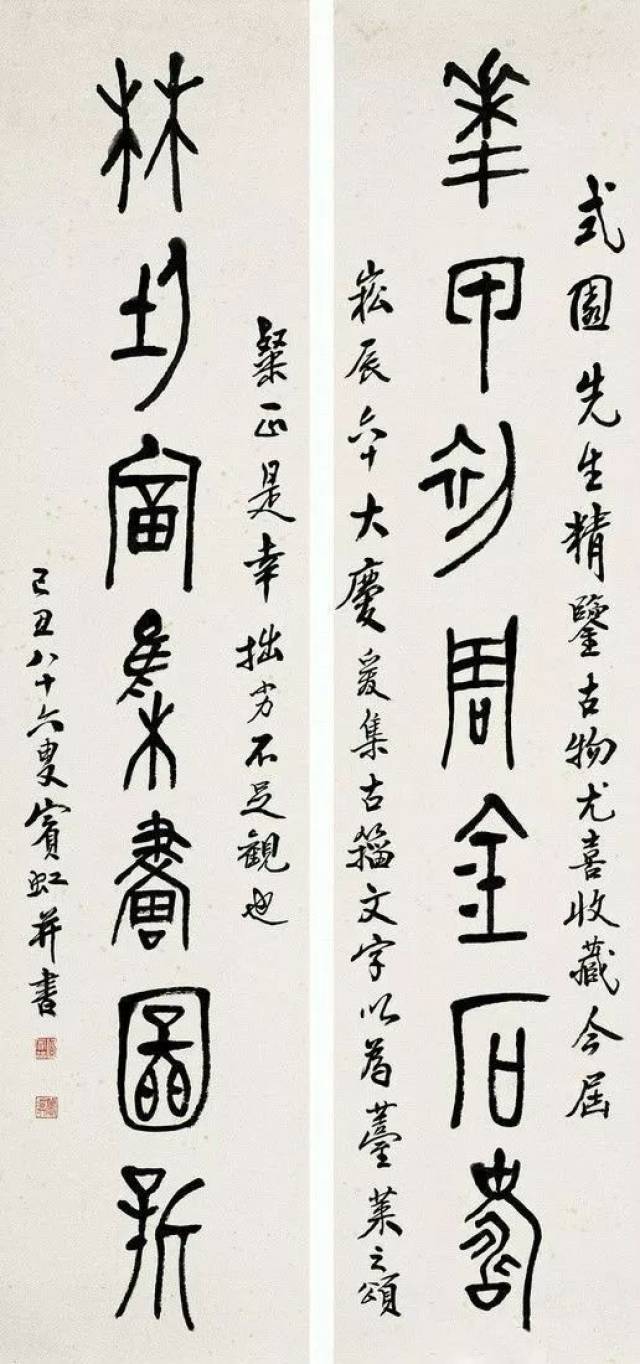 式園先生精鑒古物尤喜收藏今屆
華甲初周金石壽
崧辰六十大慶爰集古籀文字以為薹萊之頌
粲正是幸拙劣不足觀也
林均富集畫圖新
己丑八十六叟賓虹并書